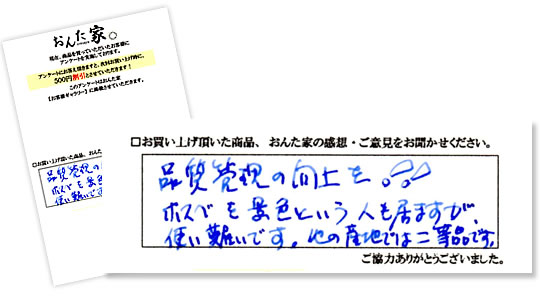 おんた家。
現在、商品を買っていただいたお客様に
アンケートを実施しております。
アンケートにお答え頂きますと、次回お買い上げ時に、
500円割引とさせていただきます!
このアンケートはおんた家
【お客様ギャラリー】に掲載させていただきます。
□お買い上げ頂いた商品、おんた
品質管理の
ホスベを景色
使い難いです
□お買い上げ頂いた商品、おんた家の感想・ご意見をお聞かせください。
品質管理の向上を。!?!
ホスベを景色という人も居ますが、
使い難いです。他の産地では二等品です。
ご協力ありがとうございました。